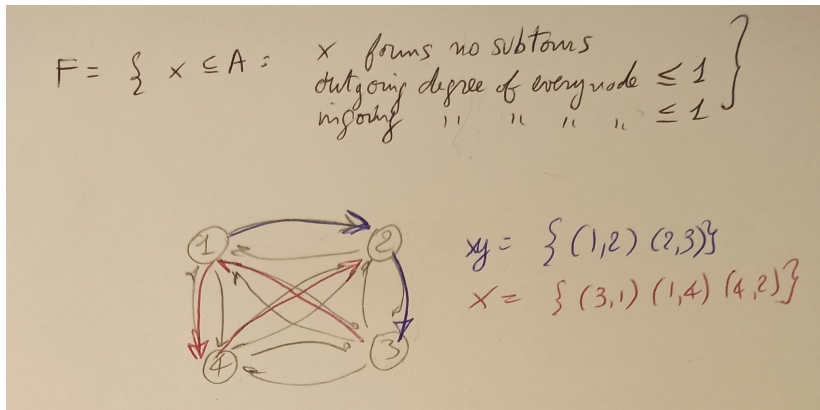 F = { x ⊆ A : x forms no subtours
outgoing degree of every node ≤ 1
ingoing " " " " ≤ 1 }
1 2
xy = { (1,2) (2,3)}
x = { (3,1) (1,4) (4,2)}
4 3